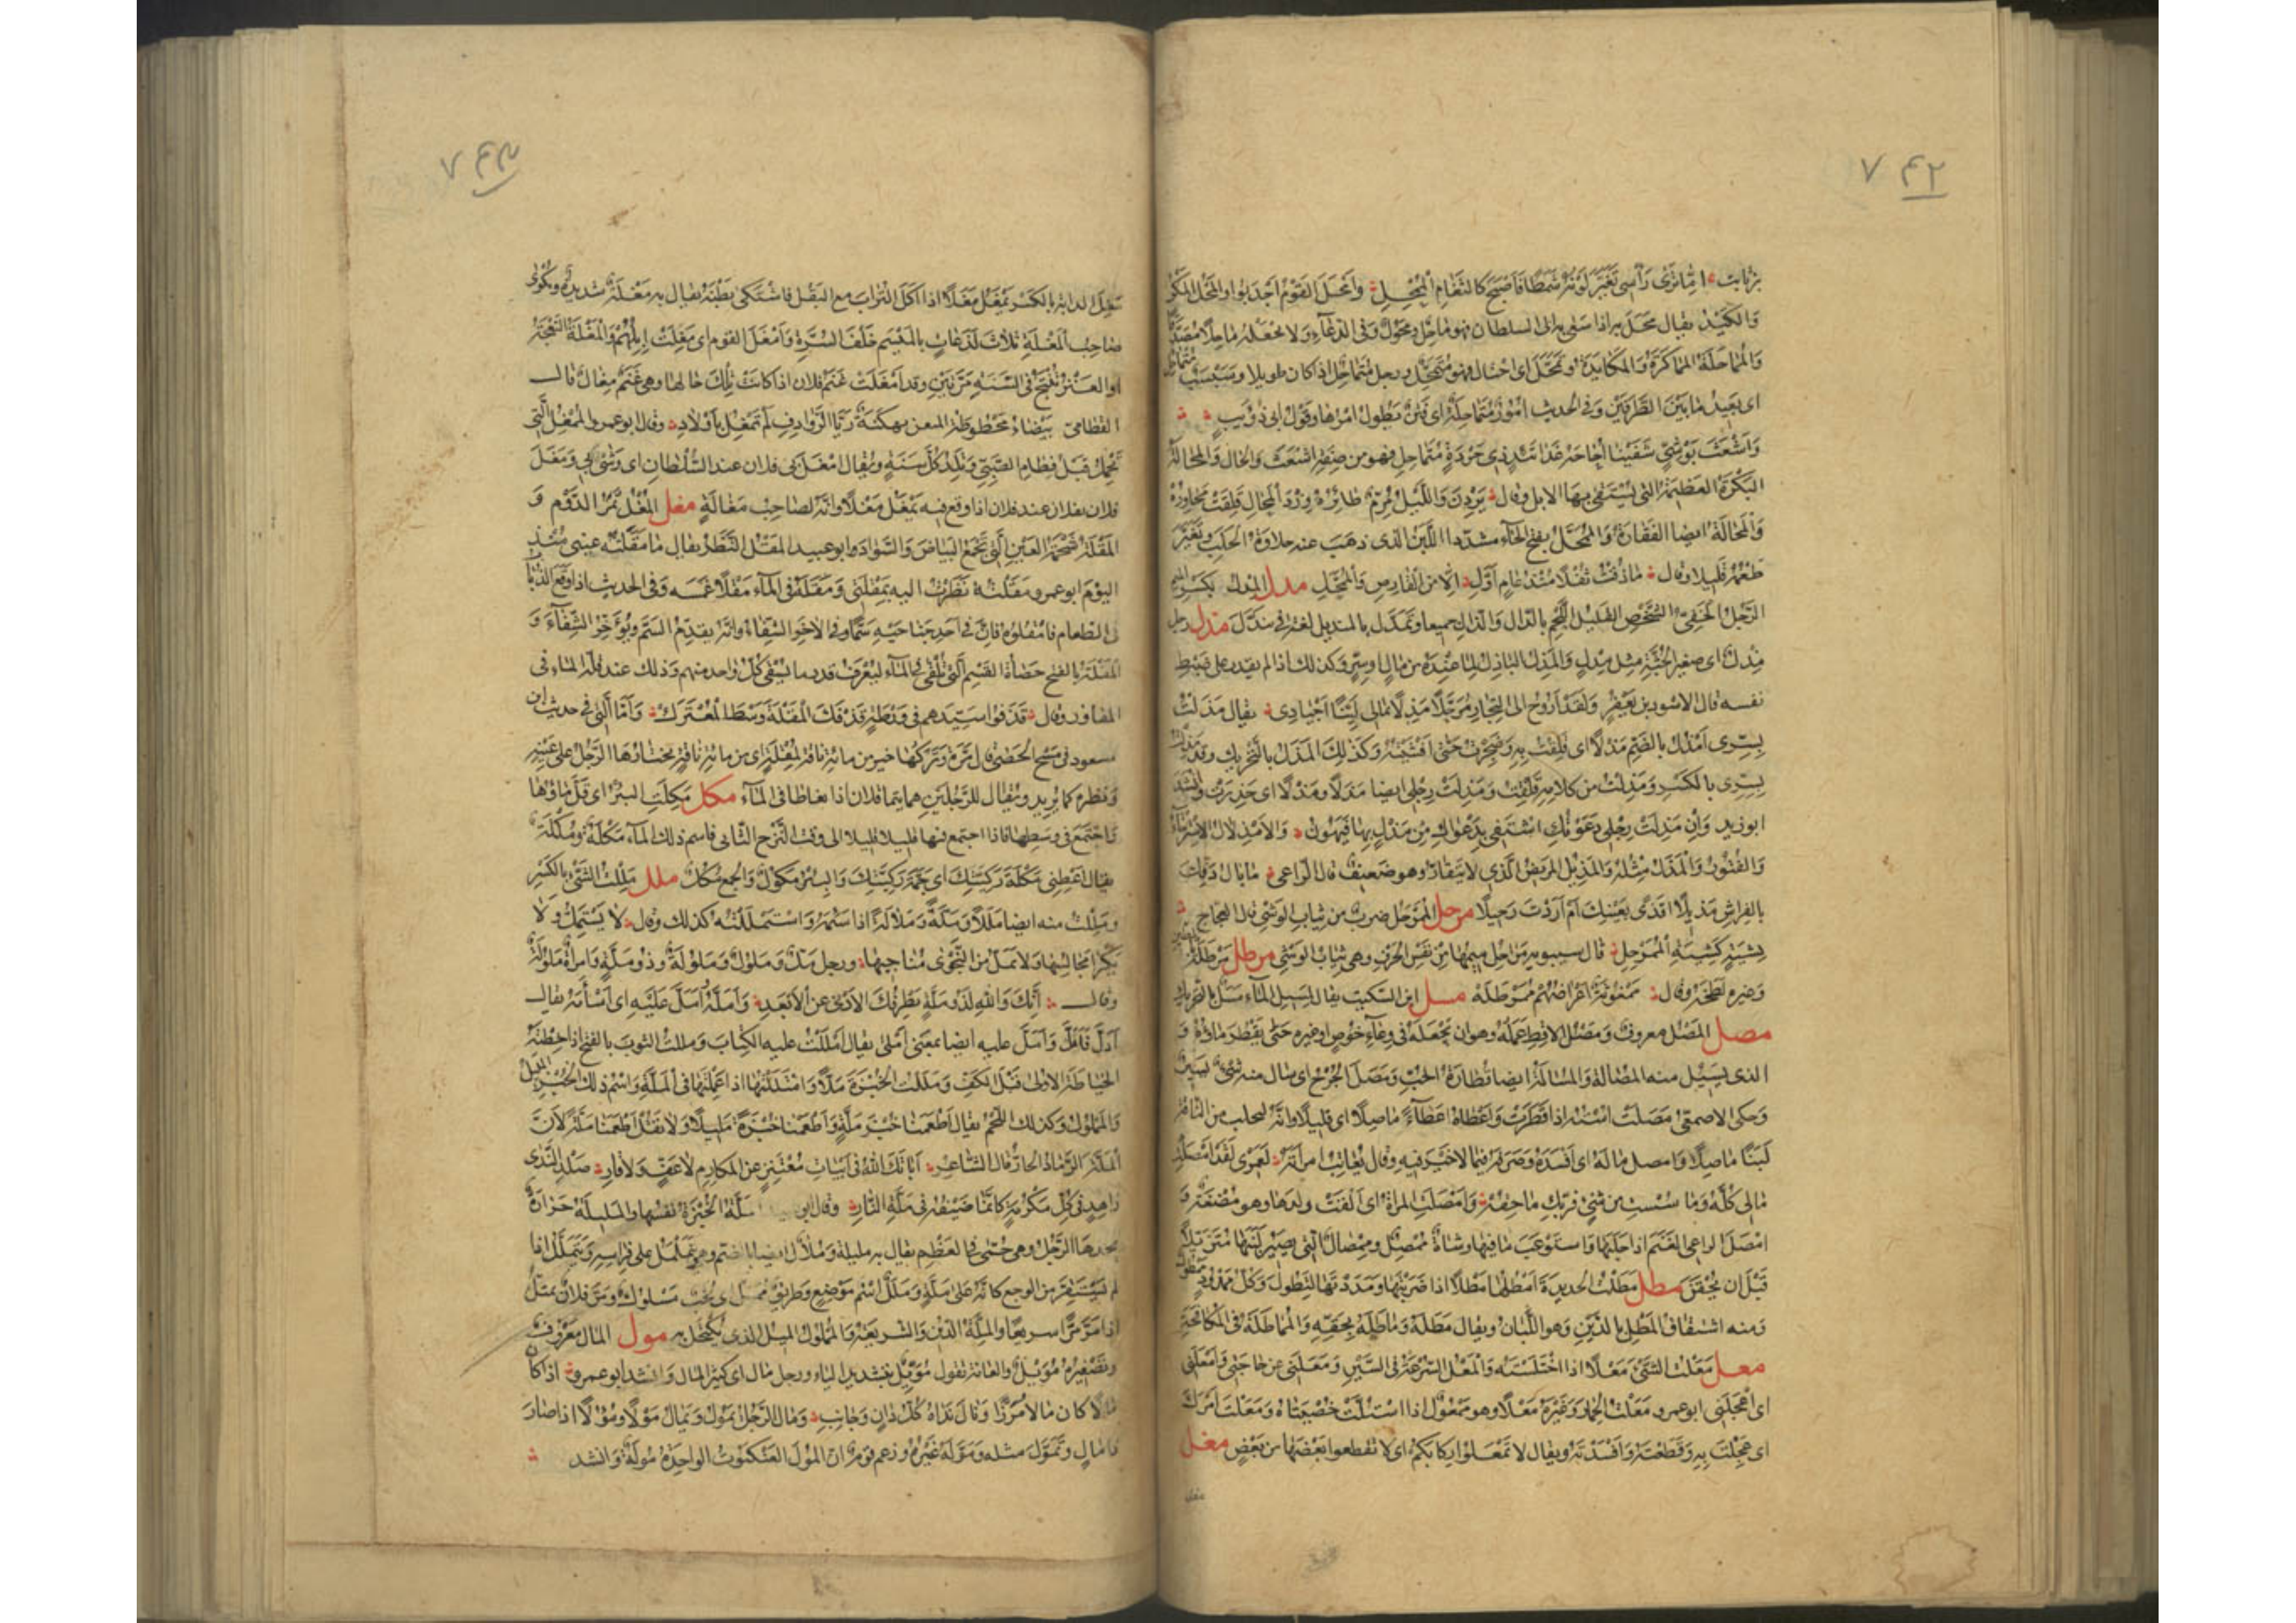 ٧٤٢
بن ثابت اما ترى رأسى تغير لونه شمطا فأصبح كالثغام الممحل وأمحل القوم أجدبوا والمحل المكر
والكيد يقال محل به اذا سعى به الى السلطان فهو ماحل ومحول وفى الدعاء ولا تجعله ماحلا مصدقا
والمماحلة المماكرة والمكايدة وتمحل اى احتال فهو متمحل ورجل متماحل اذا كان طويلا وسبسب متماحل
اى بعيد ما بين الطرفين وفى الحديث امور متماحلة اى فتن يطول امرها وقول ابى ذؤيب
وأشعث بوشى شفينا أحاحه غداتئذ ذى جردة متماحل فهو من صفة اشعث والحال والمحالة
البكرة العظيمة التى يستقى بها الابل وقال يردن والليل مرم طائره ورد المحال قلقت محاوره
والمحالة ايضا الفقارة والممحل بفتح الحاء مشددا اللبن الذى ذهب عنه حلاوة الحلب وتغير
طعمه قليلا وقال ما ذقت ثفلا منذ عام أول الا من القارص والممحل مدل المدل بكسر الميم
الرجل الخفى الشخص القليل اللحم بالدال والذال جميعا وتمدل بالمنديل لغة فى تندل مذل رجل
مذل اى صغير الجثة مثل مدل والمذل الباذل لما عنده من مال او سر وكذلك اذا لم يقدر على ضبط
نفسه قال الاسود بن يعفر ولقد أروح الى التجار مرجلا مذلا بمالى لينا أجيادى يقال مذلت
بسرى أمذل بالضم مذلا اى قلقت به وضجرت حتى أفشيته وكذلك المذل بالتحريك وقد مذلت
بسرى بالكسر ومذلت من كلامه قلقت ومذلت رجلى ايضا مذلا ومذلا اى خدرت وانشد
ابو زيد وان مذلت رجلى دعوتك أشتفى بدعواك من مذل بها فيهون والامذلال الاسترخاء
والفتور والمذل مثله والمذيل المريض الذى لا يتقار وهو ضعيف قال الراعى ما بال دفك
بالفراش مذيلا أقذى بعينك أم أردت رحيلا مرجل الممرجل ضرب من ثياب الوشى قال العجاج
بشية كشية الممرجل قال سيبويه مراجل ميمها من نفس الحرف وهى ثياب الوشى مرطل مرطله بالطين
وغيره لطخه وقال ممغوثة أعراضهم ممرطله مسل ابن السكيت يقال لمسيل الماء مسل بالتحريك
مصل المصل معروف ومصل الاقط عمله وهو ان تجعله فى وعاء خوص او غيره حتى يقطر ماؤه و
الذى يسيل منه المصالة والمصالة ايضا قطارة الحب ومصل الجرح اى سال منه شئ يسير
وحكى الاصمعى مصلت استه اذا قطرت وأعطاه عطاء ماصلا اى قليلا وانه ليحلب من الناقة
لبنا ماصلا وأمصل ماله اى أفسده وصرفه فيما لا خير فيه وقال يعاتب امرأته لعمرى لقد أمصلت
مالى كله وما سست من شئ فربك ماحقه وأمصلت المرأة اى ألقت ولدها وهو مضغة و
امصل الراعى الغنم اذا حلبها واستوعب ما فيها وشاة ممصل وممصال التى يصير لبنها متزيلا
قبل ان يحقن مطل مطلت الحديدة أمطلها مطلا اذا ضربتها ومددتها لتطول وكل ممدود ممطول
ومنه اشتقاق المطل بالدين وهو الليان ويقال مطله وماطله بحقه والمماطلة فى المكافحة
معل معلت الشئ معلا اذا اختلسته والمعل السرعة فى السير ومعلنى عن حاجتى وأمعلنى
اى اعجلنى ابو عمرو معلت الحمار وغيره معلا وهو ممعول اذا استللت خصيتاه ومعلت أمرك
اى عجلت به وقطعته وأفسدته ويقال لا تمعلوا ركابكم اى لا تقطعوا بعضها من بعض مغل
مغل
٧٤٣
مغل الدابة بالكسر تمغل مغلا اذا اكل التراب مع البقل فاشتكى بطنه يقال به مغلة شديدة ويكوى
صاحب المغلة ثلاث لذعات بالميسم خلف السرة وأمغل القوم اى مغلت ابلهم والمغلة النعجة
او العنز تنتج فى السنة مرتين وقد أمغلت غنم فلان اذا كانت تلك حالها وهى غنم مغال قال
القطامى بيضاء محطوطة المتنين بهكنة ريا الروادف لم تمغل بأولاد وقال ابو عمرو الممغل التى
تحمل قبل فطام الصبى وتلد كل سنة ويقال امغل بى فلان عند السلطان اى وشى بى ومغل
فلان بفلان عند فلان اذا وقع فيه يمغل مغلا وانه لصاحب مغالة مقل المقل ثمر الدوم و
المقلة شحمة العين التى تجمع البياض والسواد ابو عبيد المقل النظر يقال ما مقلته عينى منذ
اليوم ابو عمرو مقلته نظرت اليه بمقلتى ومقله فى الماء مقلا غمسه وفى الحديث اذا وقع الذباب
فى الطعام فامقلوه فان فى أحد جناحيه سما وفى الاخر الشفاء وانه يقدم السم ويؤخر الشفاء و
المقلة بالفتح حصاة القسم التى تلقى فى الماء ليعرف قدر ما يسقى كل واحد منهم وذلك عند قلة الماء فى
المفاوز وقال قذفوا سيدهم فى ورطة قذفك المقلة وسط المعترك وأما التى فى حديث ابن
مسعود فى مسح الحصى قال مرة وتركها خير من مائة ناقة لمقلة اى من مائة ناقة يختارها الرجل على عينه
ونظره كما يريد ويقال للرجلين هما يتماقلان اذا تغاطا فى الماء مكل مكلت البئر اى قل ماؤها
واجتمع فى وسطها فاذا اجتمع فيها قليلا قليلا الى وقت النزح الثانى فاسم ذلك الماء مكلة ومكلة
يقال أعطنى مكلة ركيتك اى جمة ركيتك والبئر مكول والجمع مكل ملل مللت الشئ بالكسر
ومللت منه ايضا مللا وملة وملالة اذا سئمته واستمللته كذلك وقال لا يستمل ولا
يكرى مجالسها ولا يمل من النجوى مناجيها ورجل مل وملول وملولة وذو ملة وامرأة ملولة
وقال انك والله لذو ملة يطرفك الادنى عن الأبعد وأمله وأمل عليه اى أسأمه يقال
أدل فأمل وأمل عليه ايضا بمعنى أملى يقال أمللت عليه الكتاب ومللت الثوب بالفتح اذا خطته
الخياطة الاولى قبل الكف ومللت الخبزة ملا وامتللتها اذا عملتها فى الملة واسم ذلك الخبز المليل
والمملول وكذلك اللحم يقال أطعمنا خبز ملة وأطعمنا خبزة مليلا ولا تقل أطعمنا ملة لأن
الملة الرماد الحار قال الشاعر أباتك الله فى أبيات معتنز عن المكارم لا عف ولا قار صلد الندى
زاهد فى كل مكرمة كأنما ضيفه فى ملة النار وقال ابو ملة الخبزة نفسها والمليلة حرارة
يجدها الرجل وهى حمى فى العظم يقال به مليلة وملال ايضا بالضم وهو يتململ على فراشه ويتملل اذا
لم يستقر من الوجع كأنه على ملة وملل اسم موضع وطريق ممل اى لحب مسلوك ومر فلان يمتل
اذا مر مرا سريعا والملة الدين والشريعة والملمول الميل الذى يكتحل به مول المال معروف
وتصغيره مويل والعامة تقول مويل بتشديد الياء ورجل مال اى كثير المال وانشد ابو عمرو اذا كا
مالا كان مالا مرزأ ونال نداه كل دان وجانب ومال الرجل يمول ويمال مولا ومؤلا اذا صار
ذا مال وتمول مثله وموله غيره وزعم قوم ان المول العنكبوت الواحدة مولة وانشد